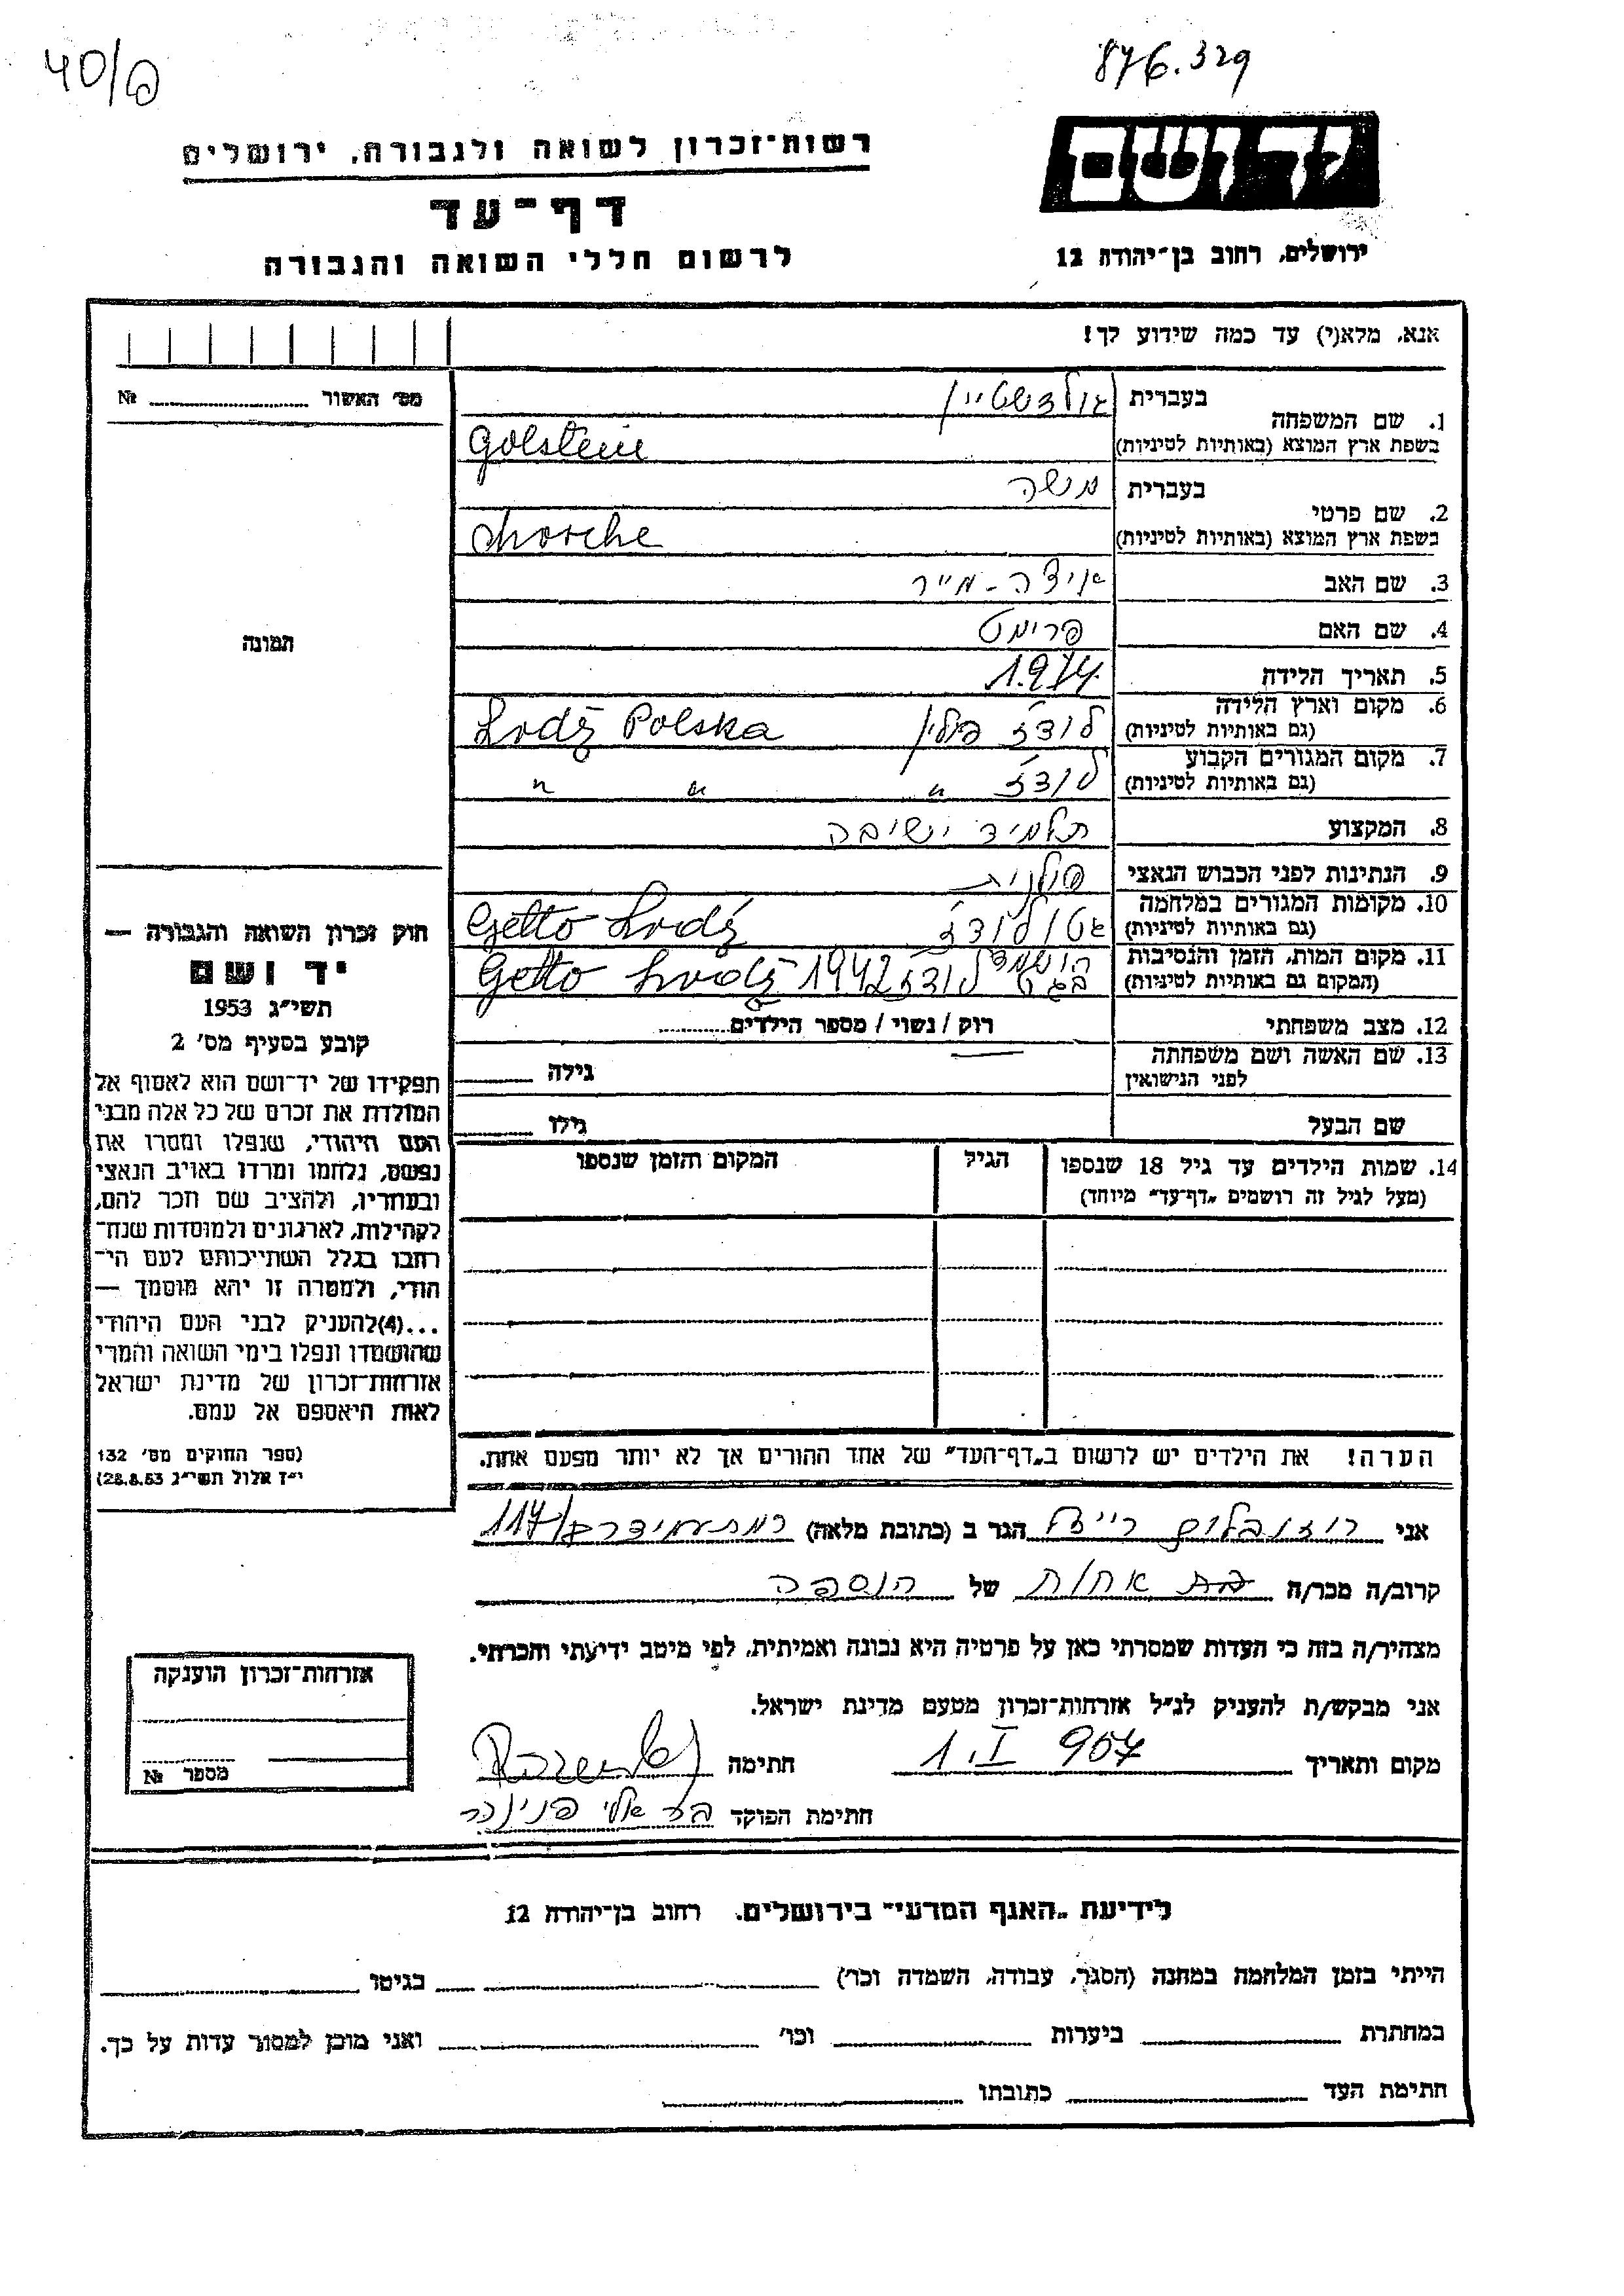 40/פ
876.329
יד ושם
רשות־זכרון לשואה ולגבורה, ירושלים
דף־עד
לרשום חללי השואה והגבורה
ירושלים, רחוב בן־יהודה 12
אנא, מלא(י) עד כמה שידוע לך!
מס׳ האשור № 
תמונה
1. שם המשפחה בעברית גולדשטיין
בשפת ארץ המוצא (באותיות לטיניות) Golstein
2. שם פרטי בעברית משה
בשפת ארץ המוצא (באותיות לטיניות) Morche
3. שם האב איצה-מייר
4. שם האם פרימט
5. תאריך הלידה
6. מקום וארץ הלידה (גם באותיות לטיניות) לודז׳ פולין Lodż Polska
7. מקום המגורים הקבוע (גם באותיות לטיניות) לודז׳ " " "
8. המקצוע תלמיד ישיבה
9. הנתינות לפני הכבוש הנאצי פולנית
10. מקומות המגורים במלחמה (גם באותיות לטיניות) גטו לודז׳ Getto Lodż
11. מקום המות, הזמן והנסיבות (המקום גם באותיות לטיניות) הושמד בגטו לודז׳ 1942 Getto Lodż
12. מצב משפחתי רוק / נשוי / מספר הילדים
13. שם האשה ושם משפחתה לפני הנישואין גילה
שם הבעל גילו
14. שמות הילדים עד גיל 18 שנספו הגיל המקום והזמן שנספו
(מעל לגיל זה רושמים „דף־עד״ מיוחד)
הערה! את הילדים יש לרשום ב„דף־העד״ של אחד ההורים אך לא יותר מפעם אחת.
חוק זכרון השואה והגבורה —
יד ושם
תשי״ג 1953
קובע בסעיף מס׳ 2
תפקידו של יד־ושם הוא לאסוף אל
המולדת את זכרם של כל אלה מבני
העם היהודי, שנפלו ומסרו את
נפשם, נלחמו ומרדו באויב הנאצי
ובעוזריו, ולהציב שם וזכר להם,
לקהילות, לארגונים ולמוסדות שנח־
רבו בגלל השתייכותם לעם הי־
הודי, ולמטרה זו יהא מוסמך —
...(4)להעניק לבני העם היהודי
שהושמדו ונפלו בימי השואה והמרי
אזרחות־זכרון של מדינת ישראל
לאות היאספם אל עמם.
(ספר החוקים מס׳ 132
י״ז אלול תשי״ג 28.8.53)
אני רוזנבלום רייזל הגר ב (כתובת מלאה) רמת עמידר 117/
קרוב/ה מכר/ה בת אחות של הנספה
מצהיר/ה בזה כי העדות שמסרתי כאן על פרטיה היא נכונה ואמיתית, לפי מיטב ידיעתי והכרתי.
אני מבקש/ת להעניק לנ״ל אזרחות־זכרון מטעם מדינת ישראל.
מקום ותאריך 1.I 957 חתימה
חתימת הפוקד
אזרחות־זכרון הוענקה
מספר №
לידיעת „האגף המדעי״ בירושלים. רחוב בן־יהודה 12
הייתי בזמן המלחמה במחנה (הסגר, עבודה, השמדה וכו׳) בגיטו
במחתרת ביערות וכו׳ ואני מוכן למסור עדות על כך.
חתימת העד כתובתו